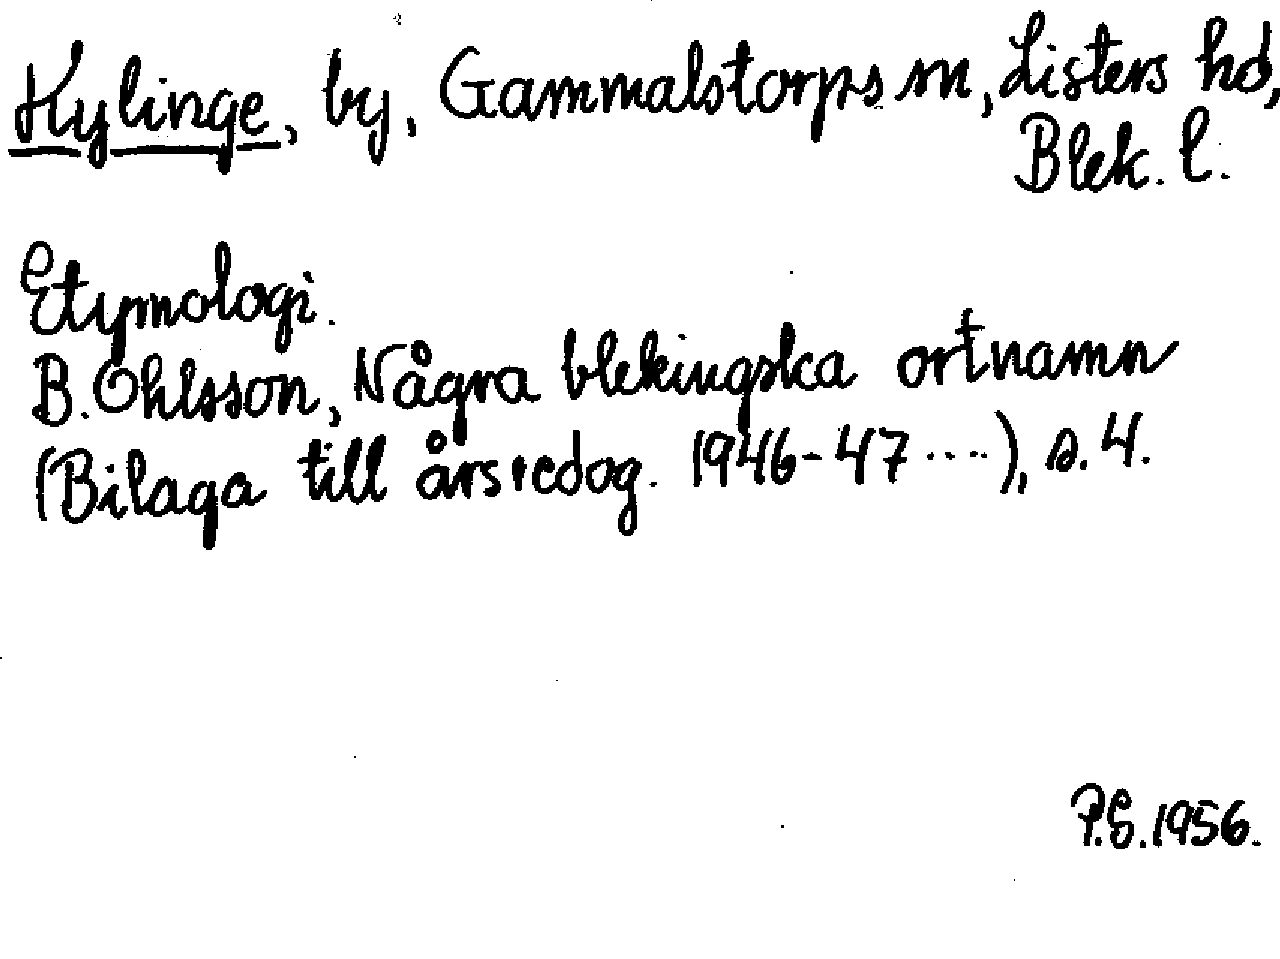 Kylinge, by, Gammalstorps sn, Listers hd,
Blek. l.
Etymologi.
B. Ohlsson, Några blekingska ortnamn
(Bilaga till årsredog. 1946-47 ....), s. 4.
P.S. 1956.